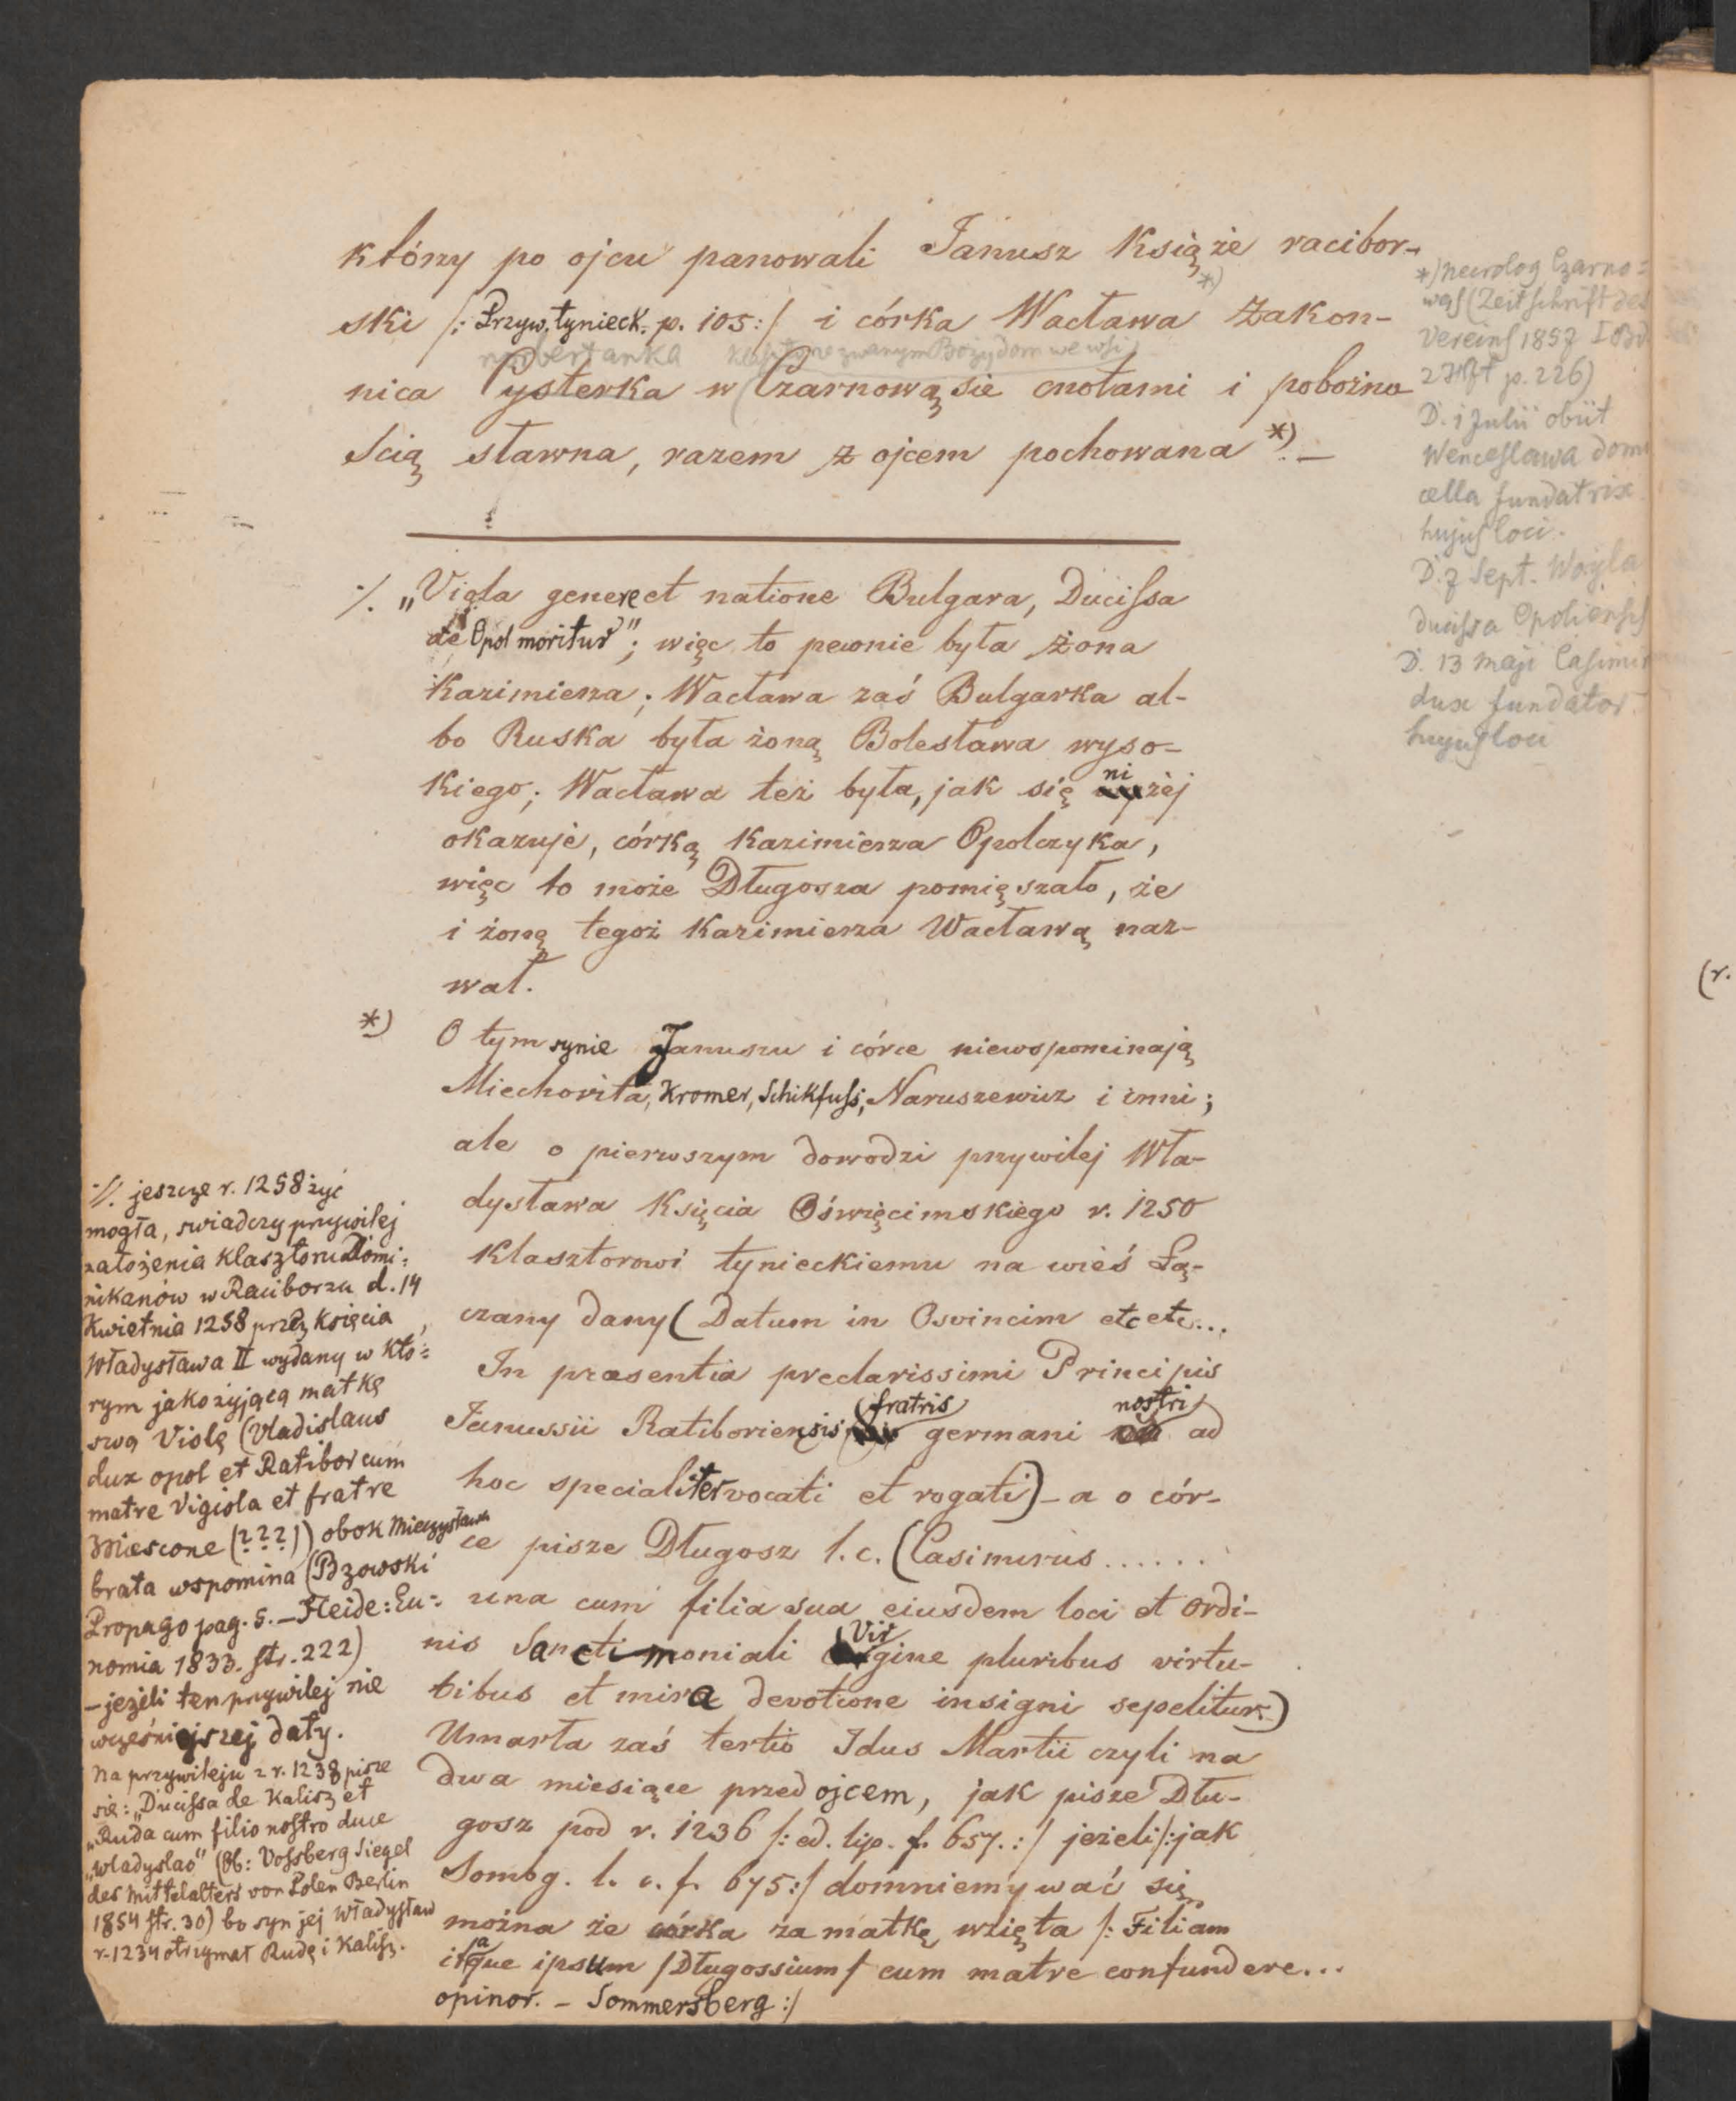 którzy po ojcu panowali Janusz Książe racibor-
ski /: Przyw. tynieck. p. 105:/ i córka Wacława *) Zakon-
norbertanka klasztorze zwanym Boży dom we wsi
nica Cysterka w (Czarnowąsie cnotami i pobożno
ścią sławna, razem z ojcem pochowana *). —
*) Necrolog Czarno=
wąs (Zeitschrift des
Vereins 1857 I Bd
2 Hft p. 226)
D. 1 Julii obiit
Wenceslawa domi
cella fundatrix
hujus loci.
D. 7 Sept. Woyla
ducissa Opoliensis
D. 13 Maji Casimir
dux fundator
hujus loci
·/. „Viola genere et natione Bulgara, Ducissa
de Opol moritur"; więc to pewnie była żona
Kazimierza; Wacława zaś Bulgarka al-
bo Ruska była żoną Bolesława wyso-
kiego; Wacława też była, jak się niżej
okazuje, córką Kazimierza Opolczyka,
więc to może Długosza pomięszało, że
i żonę tegoż Kazimierza Wacławą naz-
wał.
*) O tym synie Januszu i córce niewspominają
Miechovita, Kromer, Schikfuss, Naruszewicz i inni;
ale o pierwszym dowodzi przywilej Wła-
dysława Księcia Oświęcimskiego r. 1250
Klasztorowi tynieckiemu na wieś Łą-
czany dany (Datum in Osvincim etc etc...
In praesentia preclarissimi Principis
Janussii Ratiboriensis fratris germani nostri ad
hoc specialiter vocati et rogati) – a o cór-
ce pisze Długosz l. c. (Casimirus......
una cum filia sua eiusdem loci et ordi-
nis Sanctimoniali Virgine pluribus virtu-
tibus et mira devotione insigni sepelitur.)
Umarła zaś tertio Idus Martii czyli na
dwa miesiące przed ojcem, jak pisze Dłu-
gosz pod r. 1236 /: ed. lip. f. 657. :/ jeżeli /: jak
Sombg. l. c. f. 675:/ domniemywać się
można że córka za matkę wzięta /: Filiam
itaque ipsum /Długossium/ cum matre confundere...
opinor. – Sommersberg :/
·/. jeszcze r. 1258 żyć
mogła, swiadczy przywilej
założenia klasztoru Domi=
nikanów w Raciborzu d. 14
Kwietnia 1258 przez Księcia
Władysława II wydany w któ=
rym jako żyjącą matkę
swą Violę (Vladislaus
dux opol et Ratibor cum
matre Vigiola et fratre
Miescone (???)) obok Mieczysława
brata wspomina (Bzowski
Propago pag. 5. – Heide: Eu=
nomia 1833. str. 222)
– jeżeli ten przywilej nie
wcześniejszej daty.
Na przywileju z r. 1238 pisze
się: „Ducissa de Kalisz et
„Ruda cum filio nostro duce
„Wladyslao" (Ob: Vossberg Siegel
des Mittelalters von Polen Berlin
1854 str. 30) bo syn jej Władysław
r. 1234 otrzymał Rudę i Kalisz.
(r.